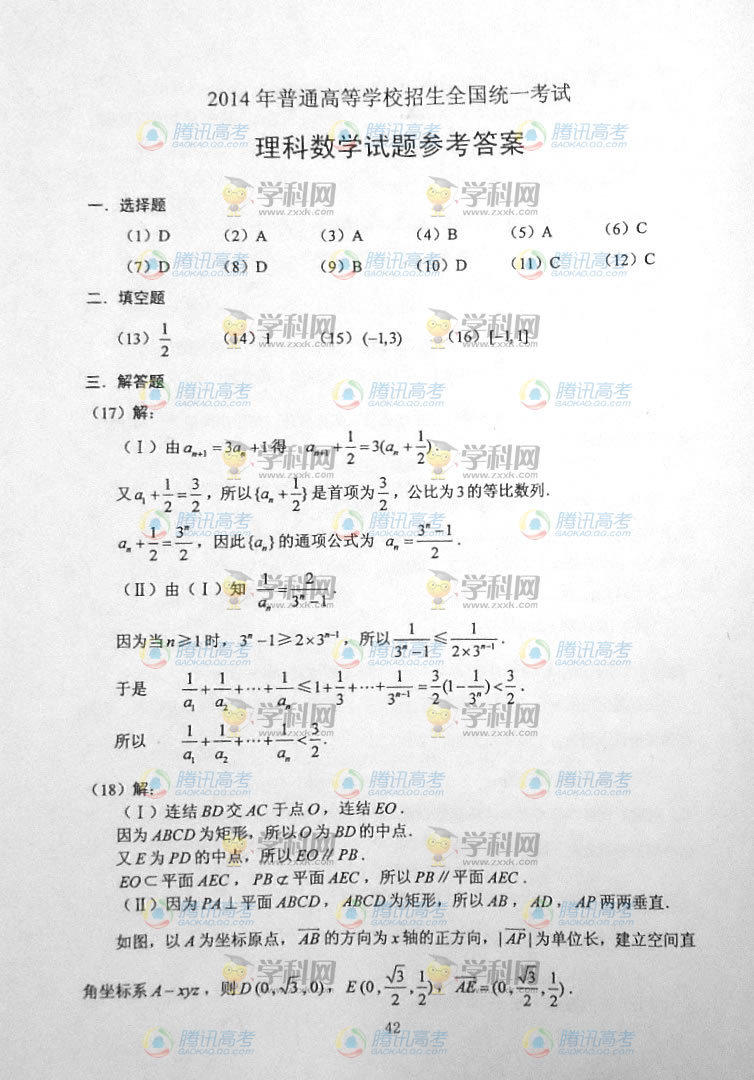 2014年普通高等学校招生全国统一考试
理科数学试题参考答案
一．选择题
(1) D (2) A (3) A (4) B (5) A (6) C
(7) D (8) D (9) B (10) D (11) C (12) C
二．填空题
(13) 1/2 (14) 1 (15) (−1,3) (16) [−1,1]
三．解答题
(17) 解：
(Ⅰ) 由 aₙ₊₁ = 3aₙ + 1 得 aₙ₊₁ + 1/2 = 3(aₙ + 1/2).
又 a₁ + 1/2 = 3/2，所以 {aₙ + 1/2} 是首项为 3/2，公比为 3 的等比数列.
aₙ + 1/2 = 3ⁿ/2，因此 {aₙ} 的通项公式为 aₙ = (3ⁿ − 1)/2.
(Ⅱ) 由（Ⅰ）知 1/aₙ = 2/(3ⁿ − 1).
因为当 n ≥ 1 时，3ⁿ − 1 ≥ 2 × 3ⁿ⁻¹，所以 1/(3ⁿ − 1) ≤ 1/(2 × 3ⁿ⁻¹).
于是 1/a₁ + 1/a₂ + ⋯ + 1/aₙ ≤ 1 + 1/3 + ⋯ + 1/3ⁿ⁻¹ = 3/2(1 − 1/3ⁿ) < 3/2.
所以 1/a₁ + 1/a₂ + ⋯ + 1/aₙ < 3/2.
(18) 解：
(Ⅰ) 连结 BD 交 AC 于点 O，连结 EO.
因为 ABCD 为矩形，所以 O 为 BD 的中点.
又 E 为 PD 的中点，所以 EO∥PB.
EO⊂平面 AEC，PB⊄平面 AEC，所以 PB∥平面 AEC.
(Ⅱ) 因为 PA⊥平面 ABCD，ABCD 为矩形，所以 AB，AD，AP 两两垂直.
如图，以 A 为坐标原点，AB 的方向为 x 轴的正方向，|AP| 为单位长，建立空间直
角坐标系 A−xyz，则 D(0,√3,0)，E(0,√3/2,1/2)，AE=(0,√3/2,1/2).
42
腾讯高考
GAOKAO.QQ.COM
学科网
www.zxxk.com